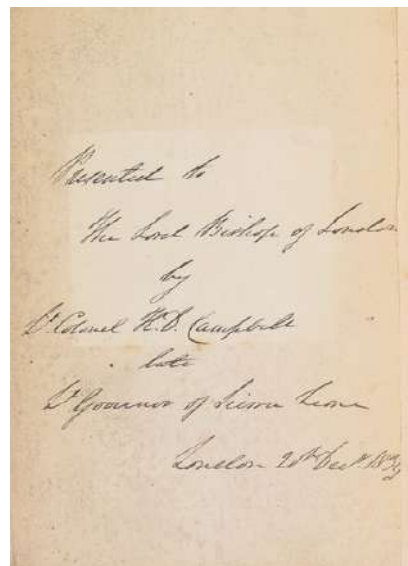 Presented to
The Lord Bishop of London
by
Lt. Colonel H.D. Campbell
late
Lt. Governor of Sierra Leone
London 20th Decr.